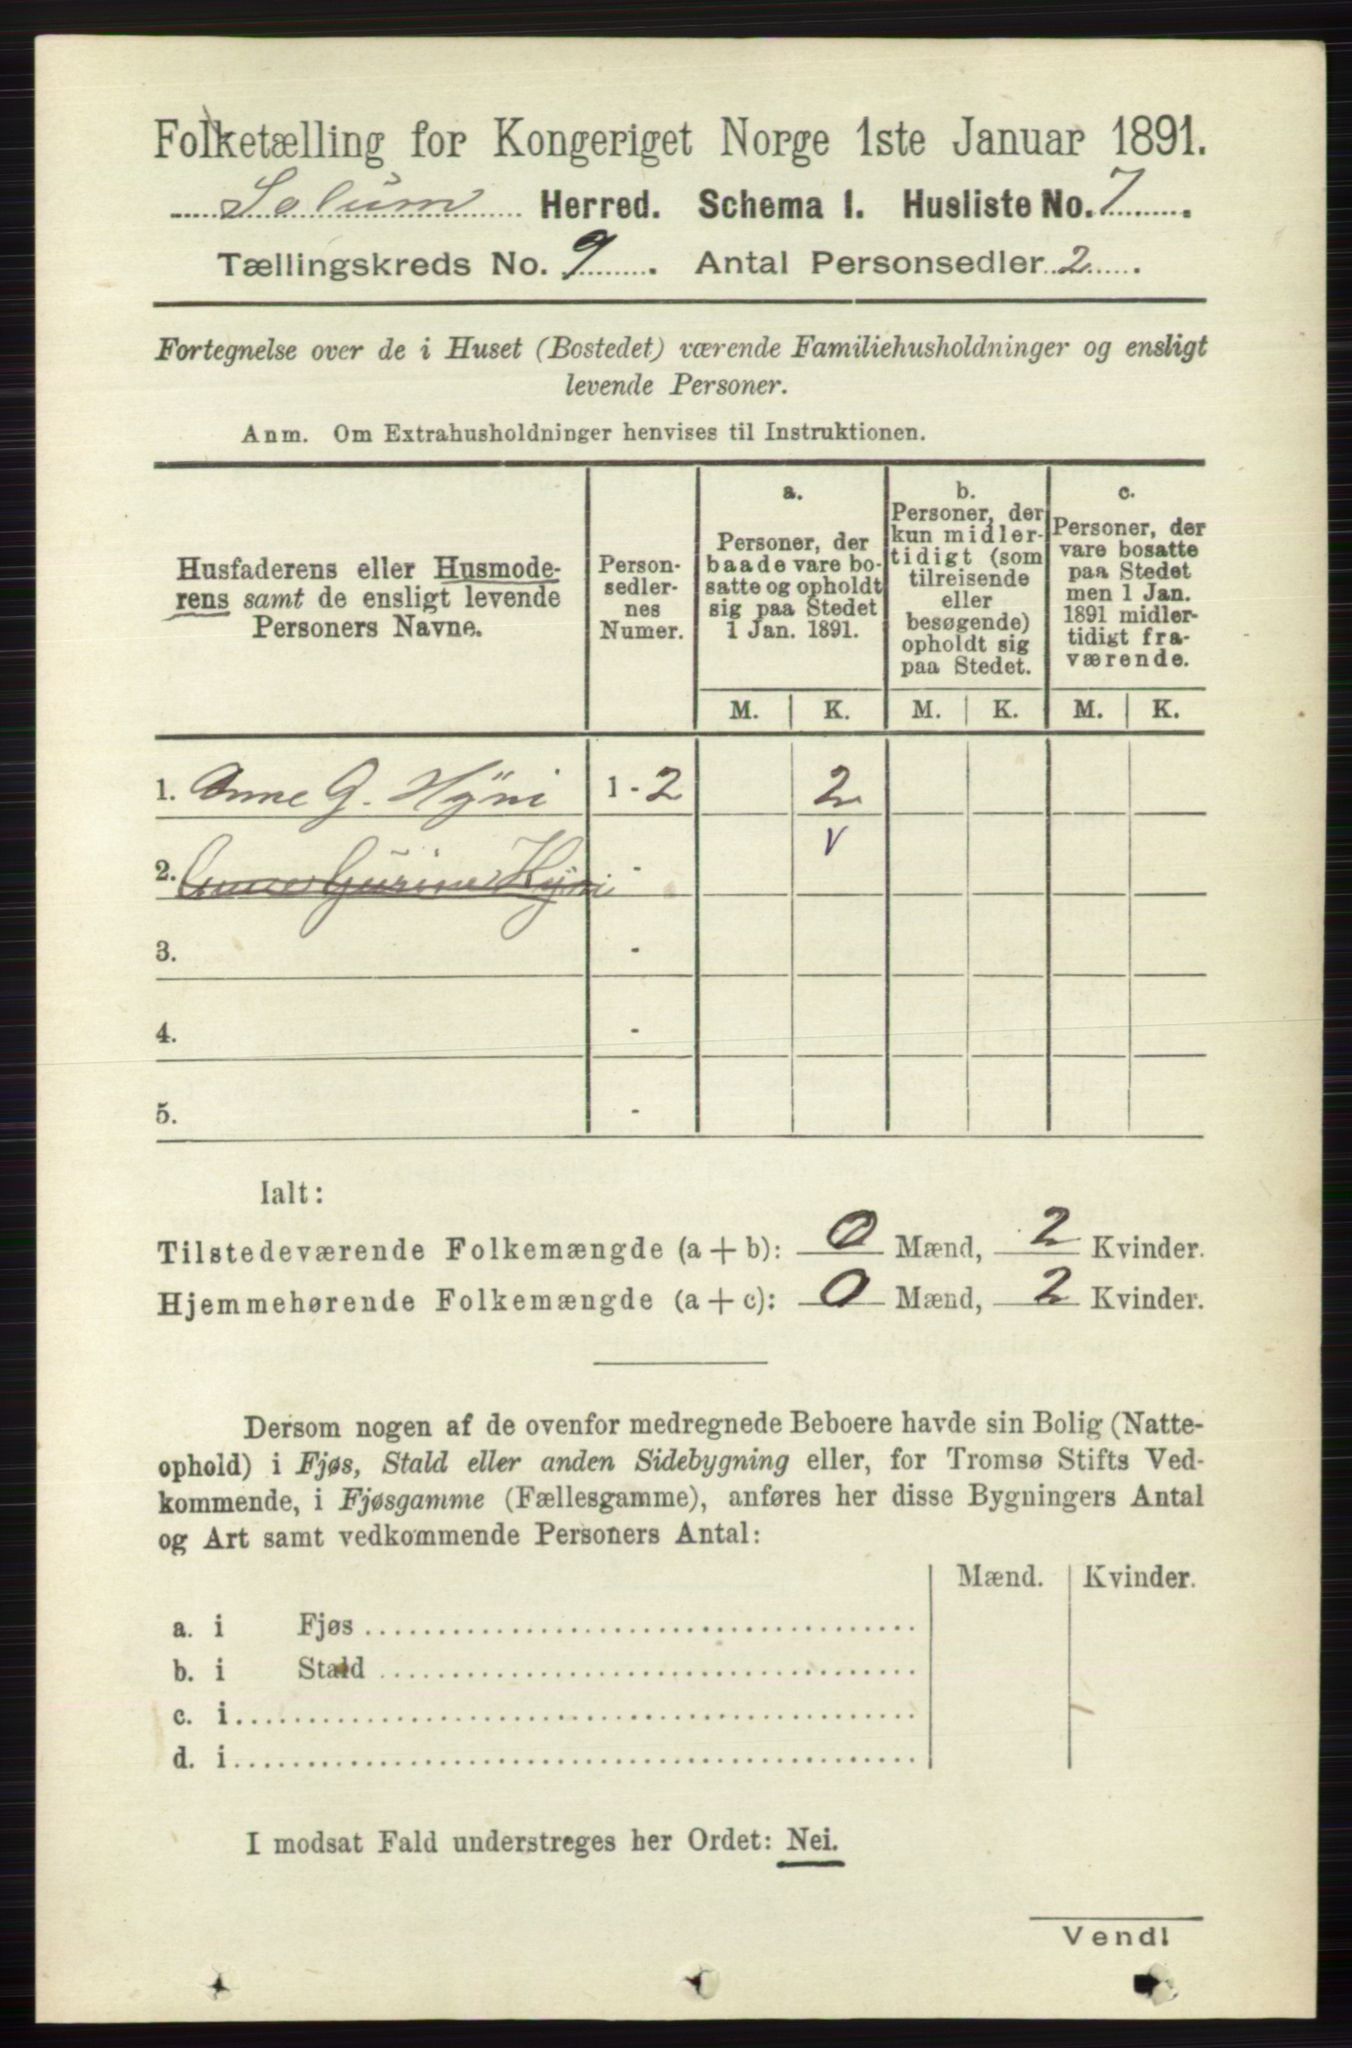 Folketælling for Kongeriget Norge 1ste Januar 1891.
Solum Herred. Schema 1. Husliste No. 7.
Tællingskreds No. 9. Antal Personsedler 2.
Fortegnelse over de i Huset (Bostedet) værende Familiehusholdninger og ensligt
levende Personer.
Anm. Om Extrahusholdninger henvises til Instruktionen.
Husfaderens eller Husmode-
rens samt de ensligt levende
Personers Navne.
Person-
sedler-
nes
Numer.
a.
Personer, der
baade vare bo-
satte og opholdt
sig paa Stedet
1 Jan. 1891.
b.
Personer, der
kun midler-
tidigt (som
tilreisende
eller
besøgende)
opholdt sig
paa Stedet.
c.
Personer, der
vare bosatte
paa Stedet
men 1 Jan.
1891 midler-
tidigt fra-
værende.
M. K. M. K. M. K.
1. Anne G. Hÿni 1 - 2 2
2. Anne Gurine Hÿni - v
3. -
4. -
5. -
Ialt:
Tilstedeværende Folkemængde (a + b): 0 Mænd, 2 Kvinder.
Hjemmehørende Folkemængde (a + c): 0 Mænd, 2 Kvinder.
Dersom nogen af de ovenfor medregnede Beboere havde sin Bolig (Natte-
ophold) i Fjøs, Stald eller anden Sidebygning eller, for Tromsø Stifts Ved-
kommende, i Fjøsgamme (Fællesgamme), anføres her disse Bygningers Antal
og Art samt vedkommende Personers Antal:
Mænd. Kvinder.
a. i Fjøs
b. i Stald
c. i
d. i
I modsat Fald understreges her Ordet: Nei.
Vend!